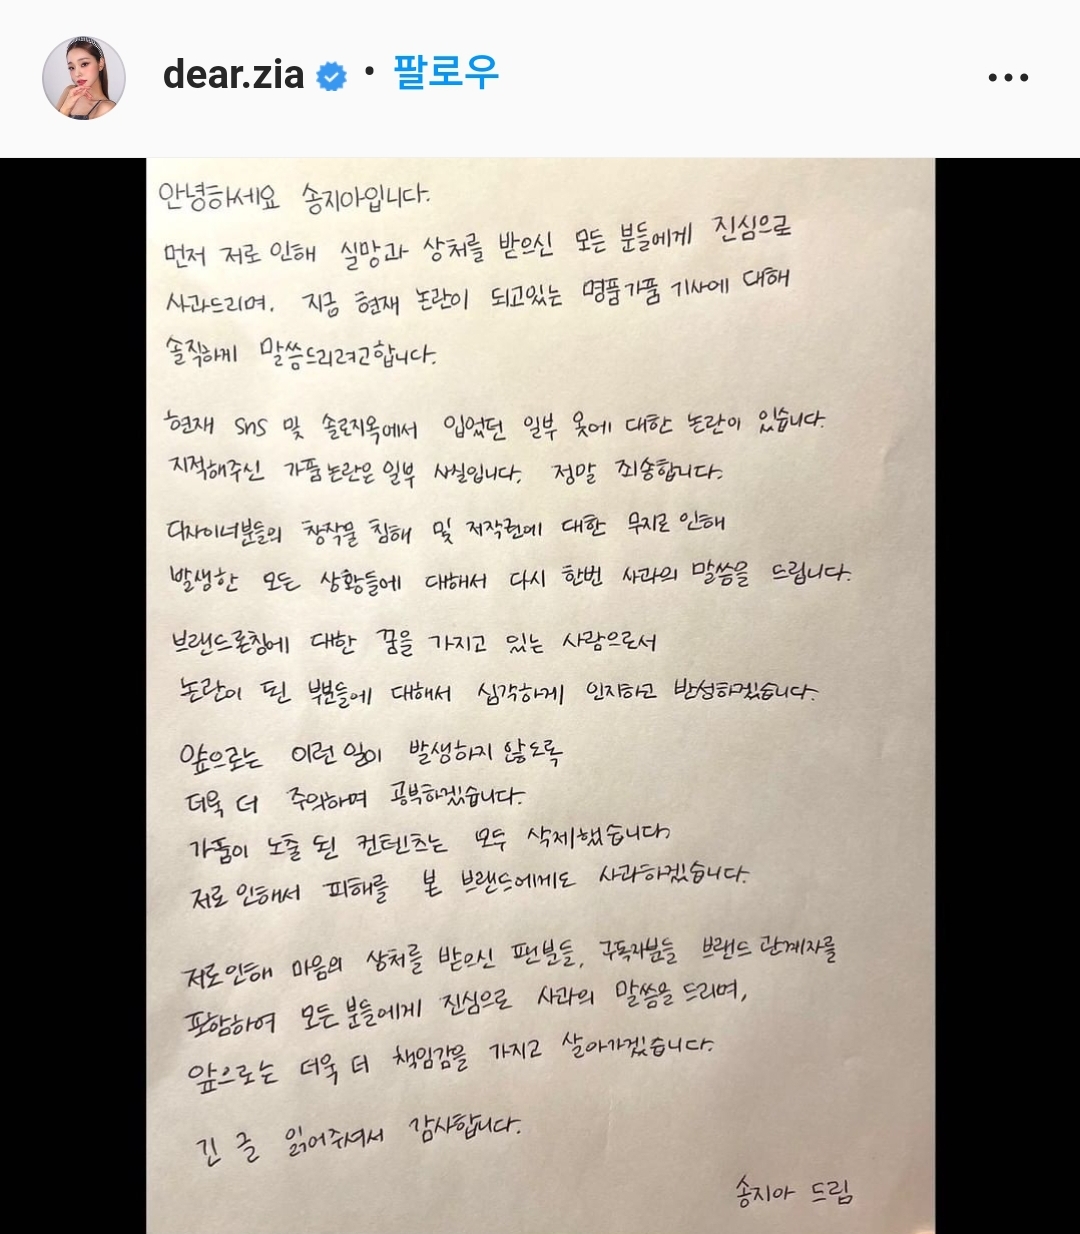 dear.zia • 팔로우
안녕하세요 송지아입니다.
먼저 저로 인해 실망과 상처를 받으신 모든 분들에게 진심으로
사과드리며, 지금 현재 논란이 되고있는 명품가품 기사에 대해
솔직하게 말씀드리려고합니다.
현재 sns 및 솔로지옥에서 입었던 일부 옷에 대한 논란이 있습니다.
지적해주신 가품논란은 일부 사실입니다. 정말 죄송합니다.
디자이너분들의 창작물 침해 및 저작권에 대한 무지로 인해
발생한 모든 상황들에 대해서 다시 한번 사과의 말씀을 드립니다.
브랜드론칭에 대한 꿈을 가지고 있는 사람으로서
논란이 된 부분들에 대해서 심각하게 인지하고 반성하겠습니다.
앞으로는 이런 일이 발생하지 않도록
더욱 더 주의하며 공부하겠습니다.
가품이 노출 된 컨텐츠는 모두 삭제했습니다.
저로 인해서 피해를 본 브랜드에게도 사과하겠습니다.
저로인해 마음의 상처를 받으신 팬분들, 구독자분들 브랜드 관계자를
포함하여 모든 분들에게 진심으로 사과의 말씀을 드리며,
앞으로는 더욱 더 책임감을 가지고 살아가겠습니다.
긴 글 읽어주셔서 감사합니다.
송지아 드림